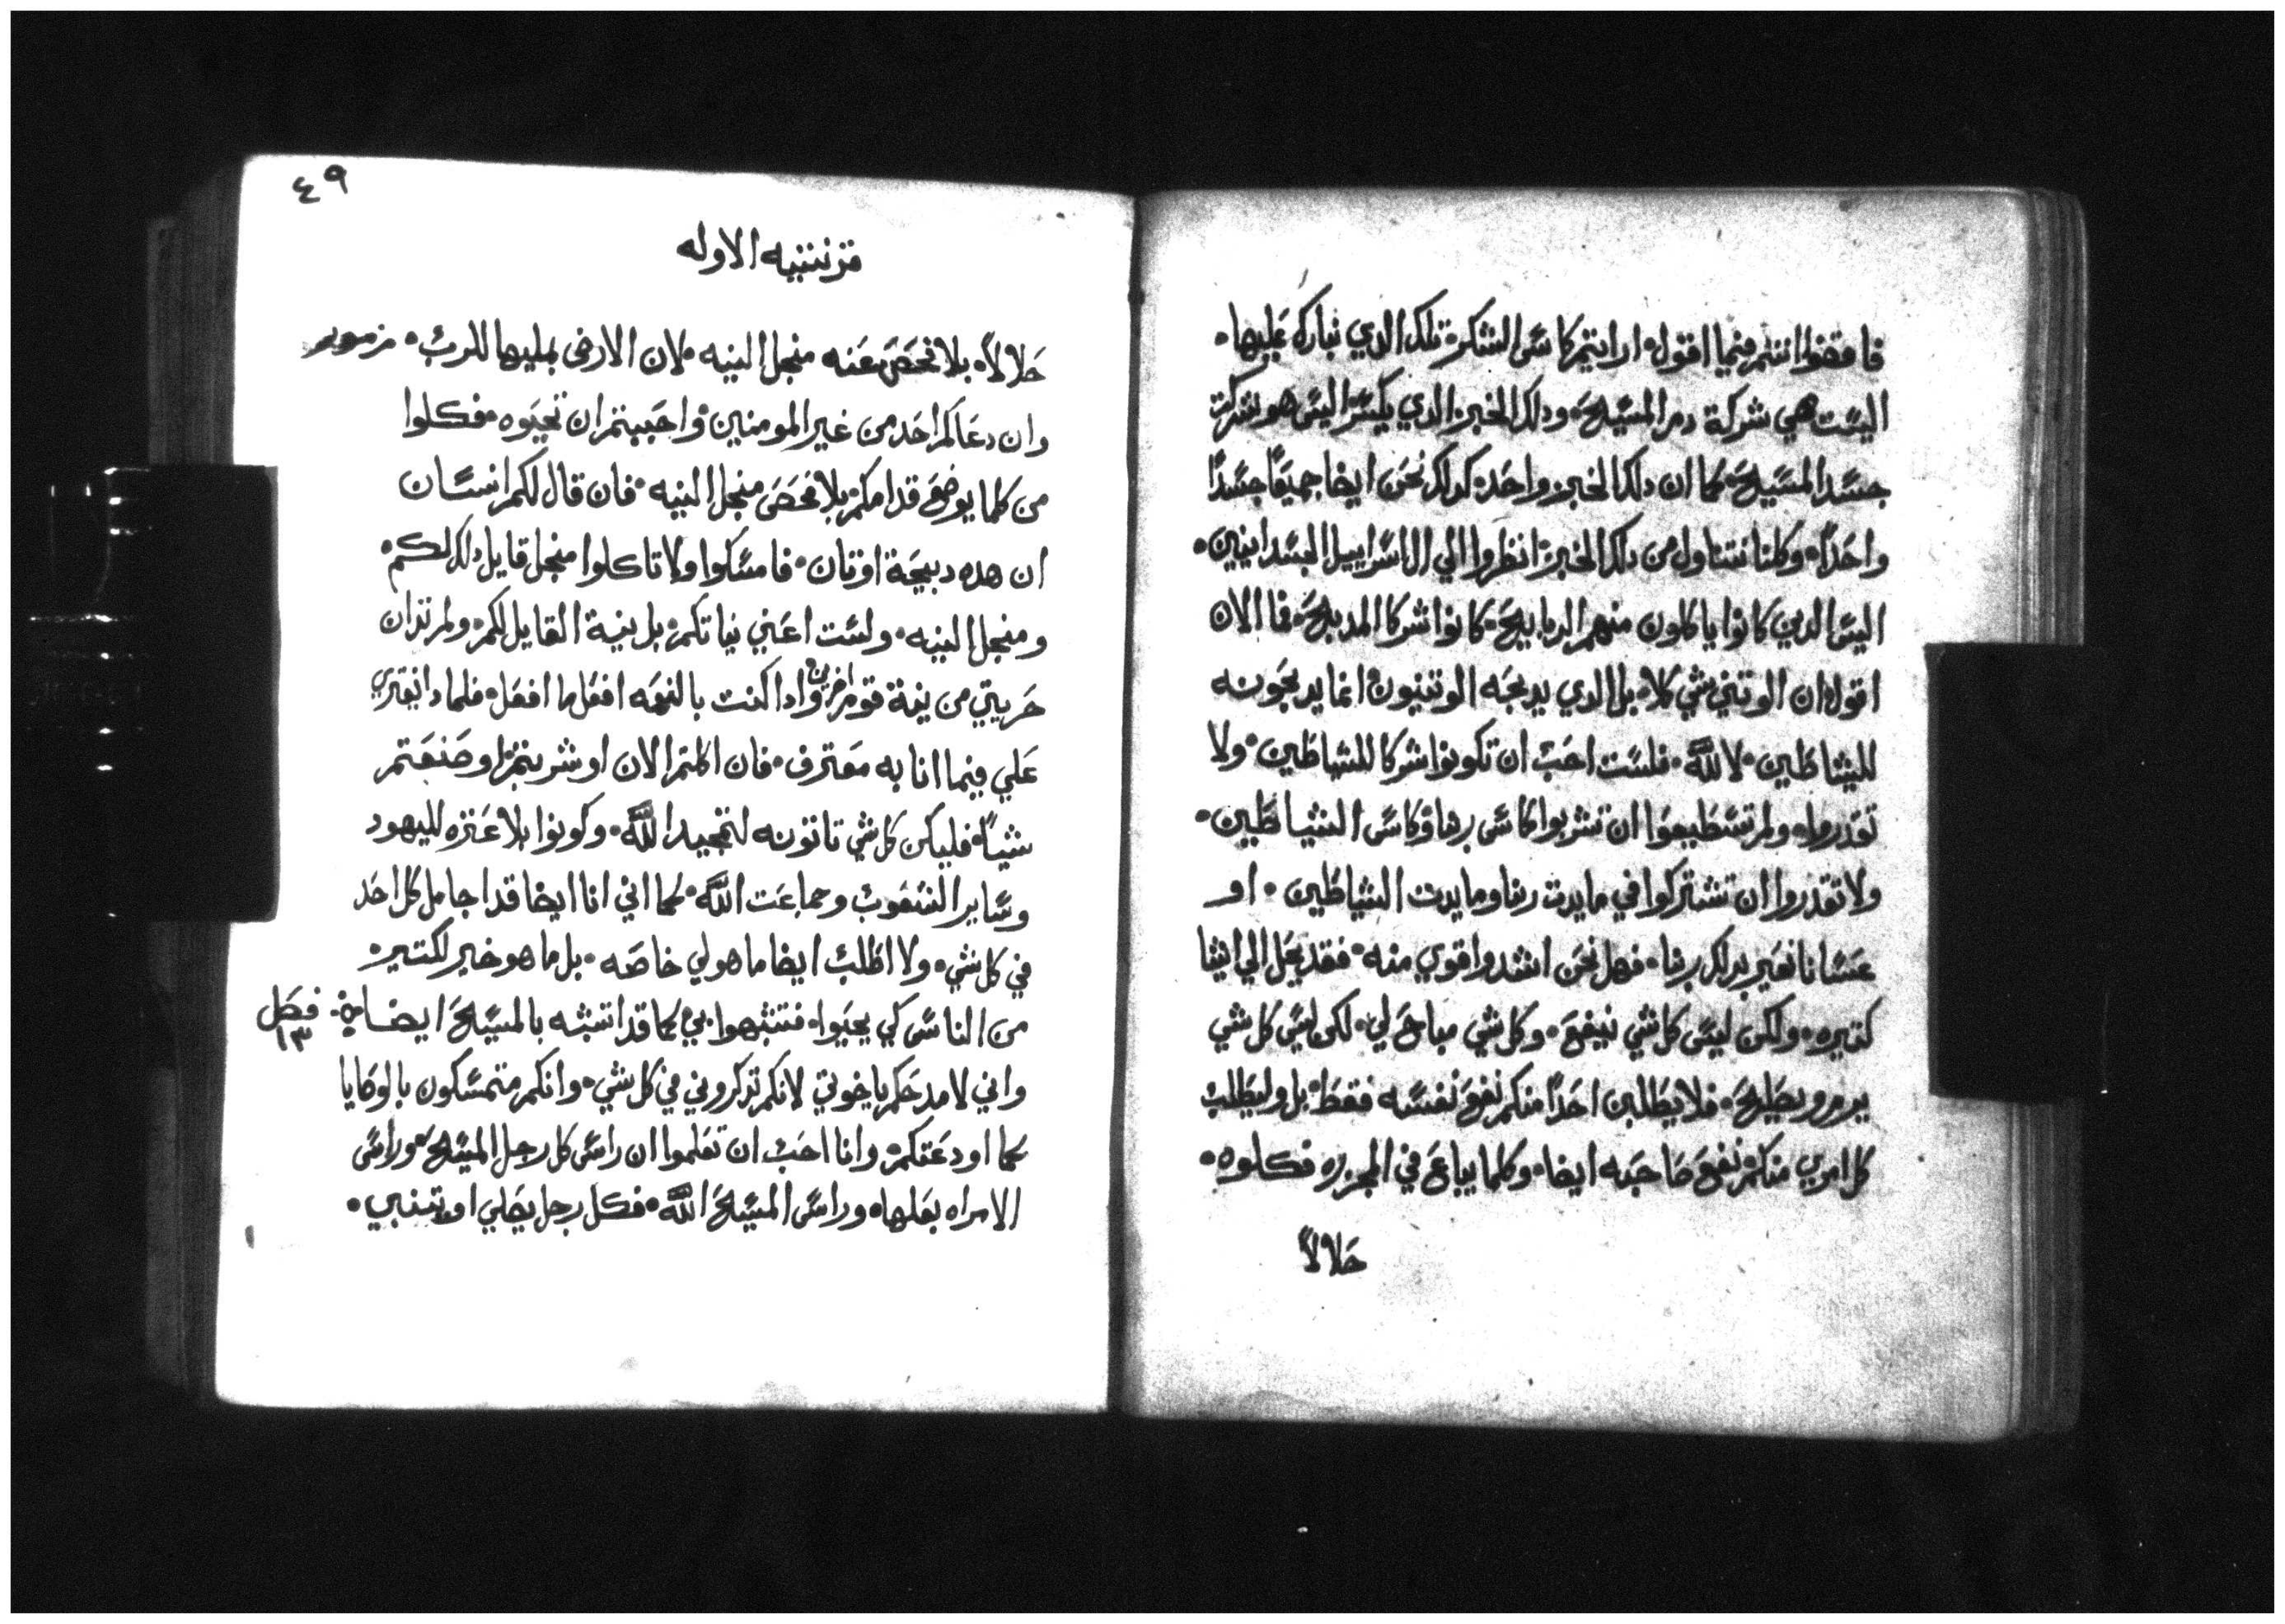 فاقضوا انتم فيما اقول٠ ارايتم كاس الشكر٠ تلك الدي نبارك عليها٠
اليست هي شركة دم المسيح٠ ودلك الخبز الدي يكسر اليس هو شركت
جسد المسيح٠ كما ان دلك الخبز واحد٠ كدلك نحن ايضا جميعًا جسدًا
واحدًا٠ وكلنا نتناول من دلك الخبز٠ انظروا الي ال اسراييل الجسدانيين٠
اليس الدين كانوا ياكلون منهم الدبايح٠ كانوا شركا المدبح٠ فما الان
اقول ان الوتني شي كلا٠ بل الدي يدبحه الوتنيون انما يدبحونه
للشياطين٠ لا لله٠ فلست احب ان تكونوا شركا للشياطين٠ ولا
تقدروا٠ ولم تستطيعوا ان تشربوا كاس ربنا وكاس الشياطين٠
ولا تقدروا ان تشتركوا في مايدت ربنا ومايدت الشياطين٠ او
عسانا نغير بدلك ربنا٠ فهل نحن اشد واقوي منه٠ فقد يحل الي اشيا
كتيره٠ ولكن ليس كل شي نيفع٠ وكل شي مباح لي٠ لكن ليس كل شي
يرم ويصلح٠ فلا يطلبن احدًا منكم نفع نفسه فقط٠ بل وليطلب
كل امري منكم نفع صاحبه ايضا٠ وكلما يباع في المجزره فكلوه٠
حلالاً
٤٩
قرنتنيه الاوله
حلالاً٠ بلا فحص عنه منجل النيه٠ لان الارض بمليها للرب٠ مزمور
وان دعاكم احد من غير المومنين٠ واحببتم ان تجيوه٠ فكلوا
من كلما يوضع قدامكم٠ بلا فحص منجل النيه٠ فان قال لكم انسان
ان هده دبيحة اوتان٠ فامسكوا ولا تاكلوا منجل قايل دلك لكم٠
ومنجل النيه٠ ولست اعني نياتكم٠ بل نية القايل لكم٠ ولم تدان
حريتي من نية قوم اخرين وادا كنت بالنعمه افعل ما افعل٠ فلمادا يفتري
علي فيما انا به معترف٠ فان اكلتم الان او شربتم٠ او صنعتم
شيًا٠ فليكن كل شي تاتونه لتمجيد الله٠ وكونوا بلا عتره لليهود
وساير الشعوب وجماعت الله٠ كما اني انا ايضا قد اجامل كل احد
في كل شي٠ ولا اطلب ايضا ما هو لي خاصه٠ بل ما هو خير لكتير
من الناس كي يحيوا٠ فتشبهوا بي٠ كما قد اتشبه بالمسيح ايضا٠ فصل
١٣
واني لامدحكم ياخوتي لانكم تدكروني في كل شي٠ وانكم متمسكون بالوصايا
كما اودعتكم٠ وانا احب ان تعلموا ان راس كل رجل المسيح٠ وراس
الامراه بعلها٠ وراس المسيح الله٠ فكل رجل يصلي او يتنبي٠